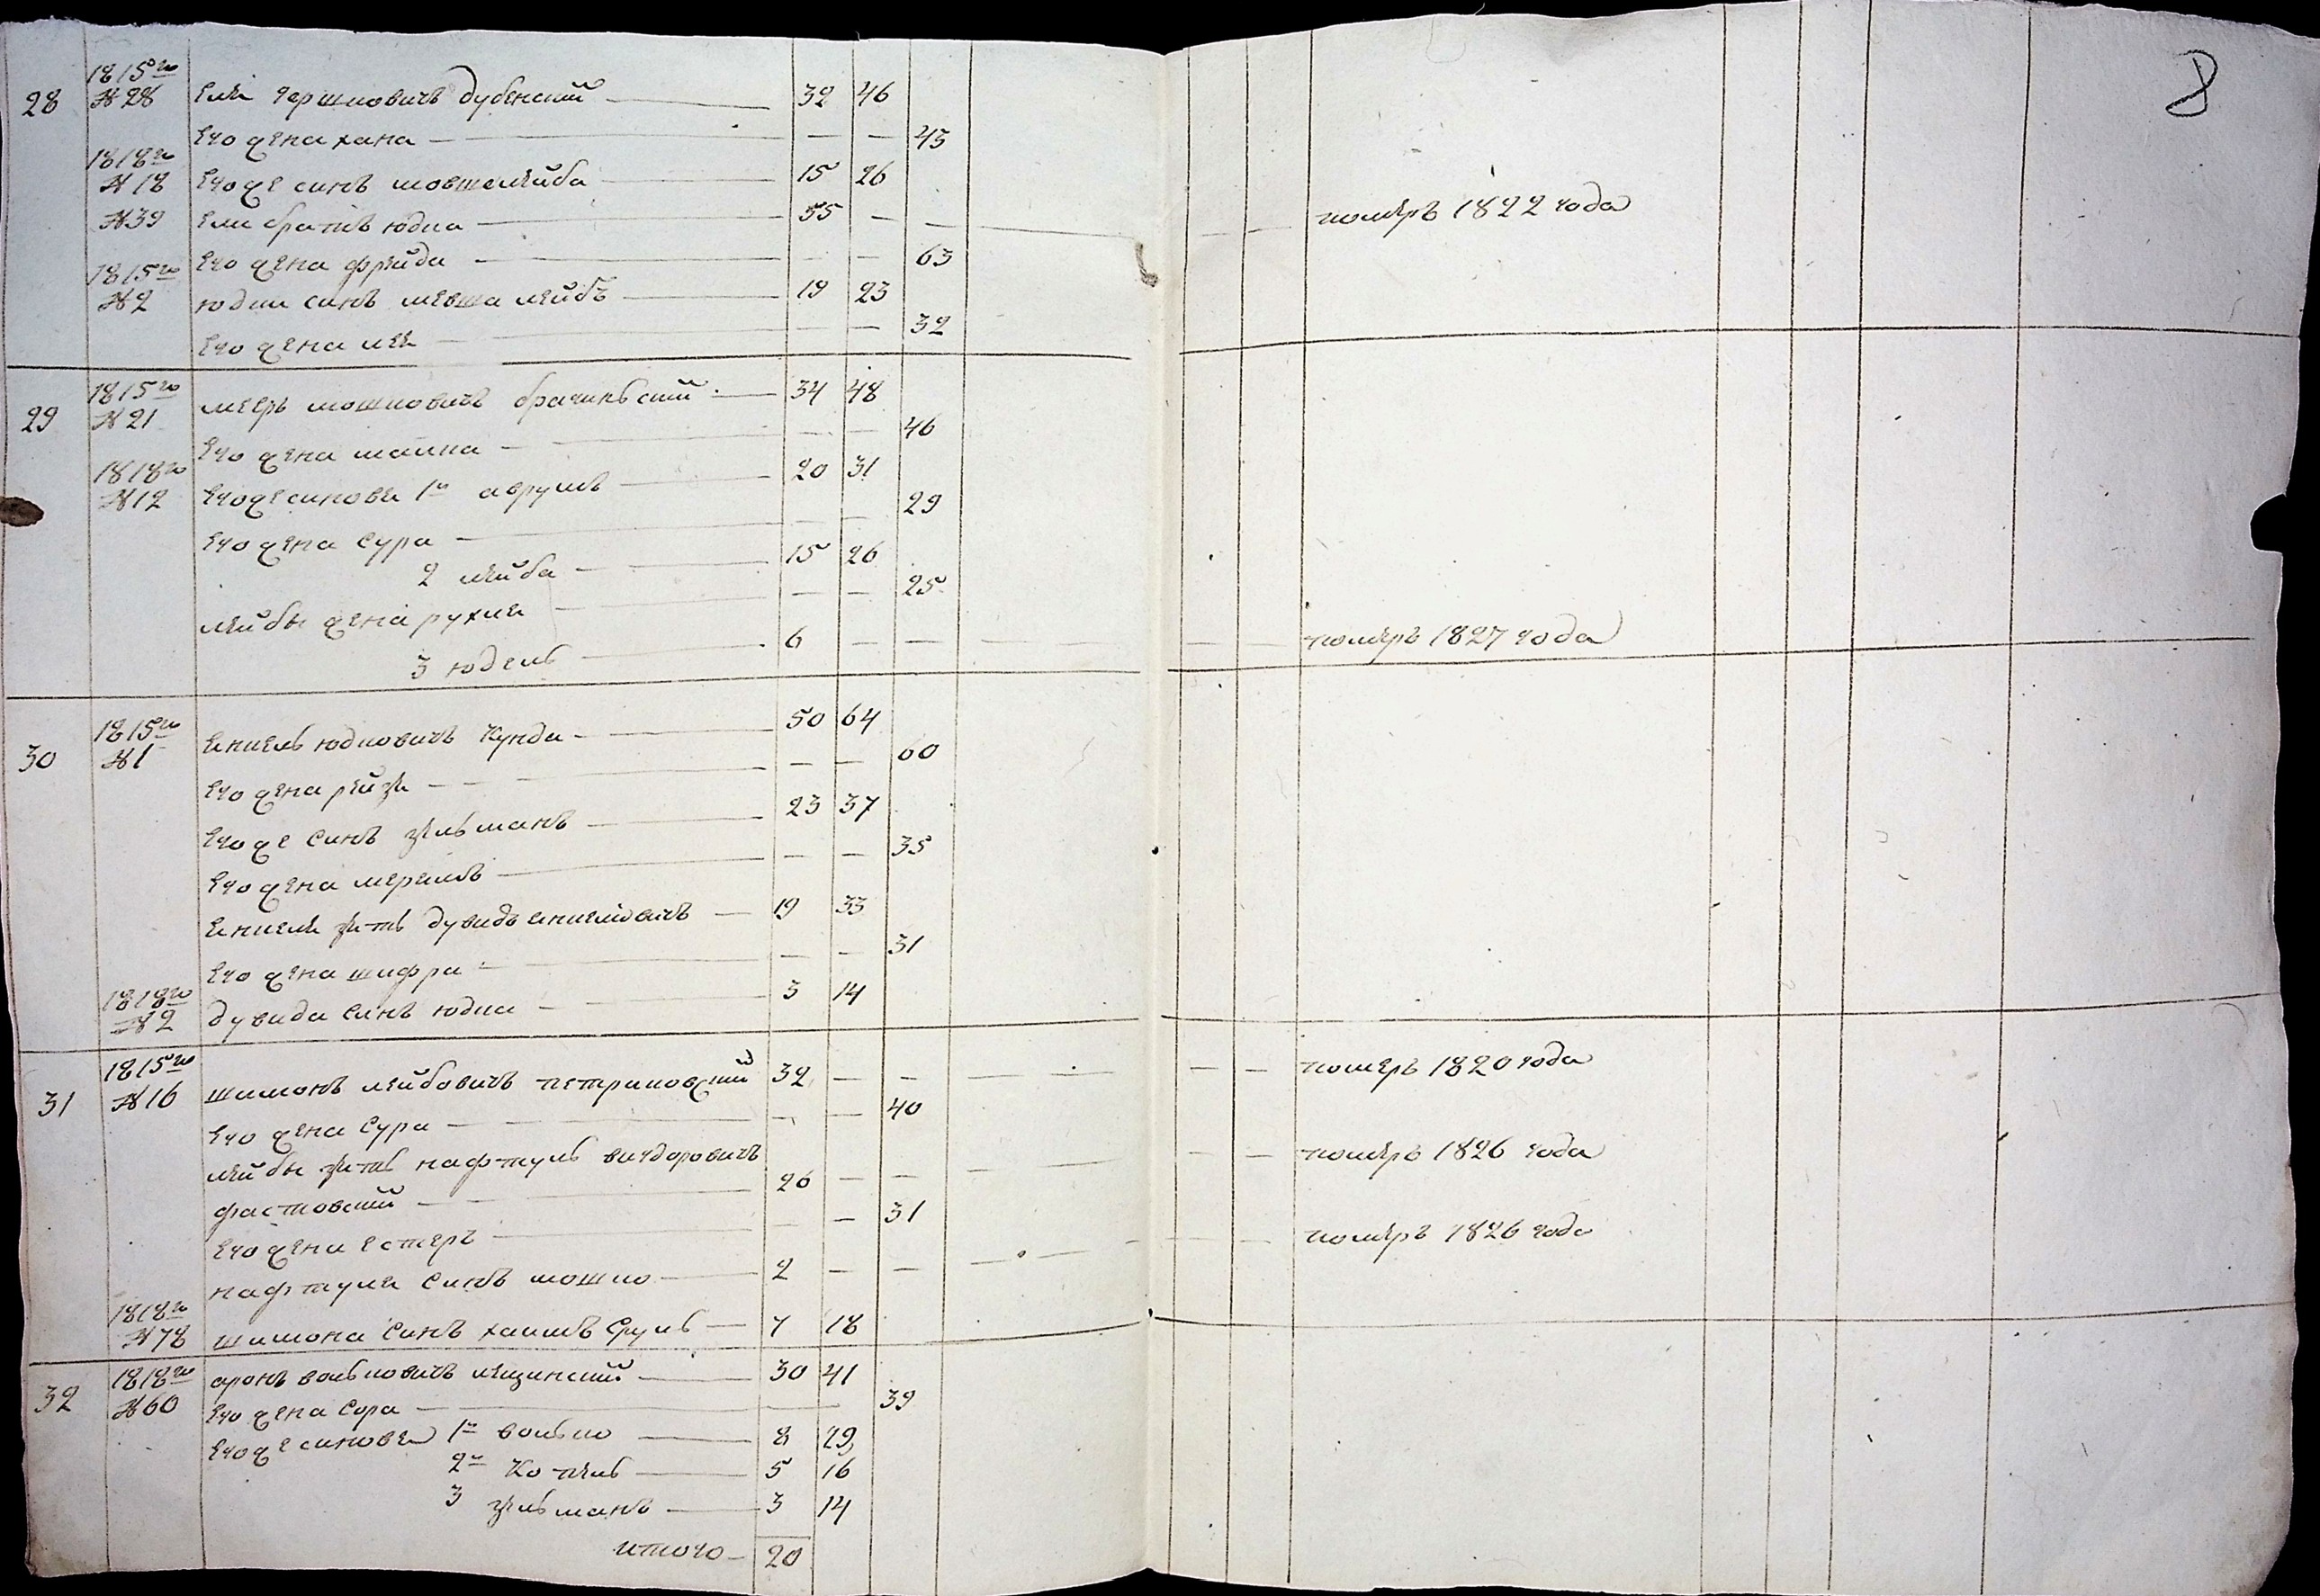 8
28 1815го № 28 Ели Гершковичъ дубенский 32 46
Его жена хана 43
1818го № 18 Его же синъ мовшелейба 15 26
№ 39 Ели братъ юдка 55 — — померъ 1822 года
Его жена фрейда — — 63
1815го № 2 юдки синъ мевша лейбъ 19 23
Его жена лея — — 32
29 1815го № 21 мееръ мошковичъ брагинский 34 48
Его жена маниа — — 46
1818го № 12 Его же синовя 1й аврумъ 20 31
Его жена сура — — 29
2 лейба 15 26
лейбы жена рухля — — 25
3 юдель 6 — — померъ 1827 года
30 1815го № 1 Янкель юдковичъ Кунда 50 64
Его жена рейзя — — 60
Его же синъ зельманъ 23 37
Его жена меремъ — — 35
Янкеля зять дувидъ Янкелiовичъ 19 33
Его жена шифра — — 31
1818го № 2 дувида синъ юдка 3 14
31 1815го № 16 шимонъ лейбовичъ петриковский 32 — — померъ 1820 года
Его жена Сура — — 40
лейбы зять нафтуль вигдоровичъ
фастовский 26 — — померъ 1826 года
Его жена естеръ — — 31
нафтуля синъ мошко 2 — — померъ 1826 года
1818го № 78 шимона синъ хаимъ Сруль 7 18
32 1818го № 60 аронъ вольковичъ лещинский 30 41
Его жена Сора — 39
Его же синовя 1й волько 8 29
2й Копель 5 16
3 зельманъ 3 14
итого 20